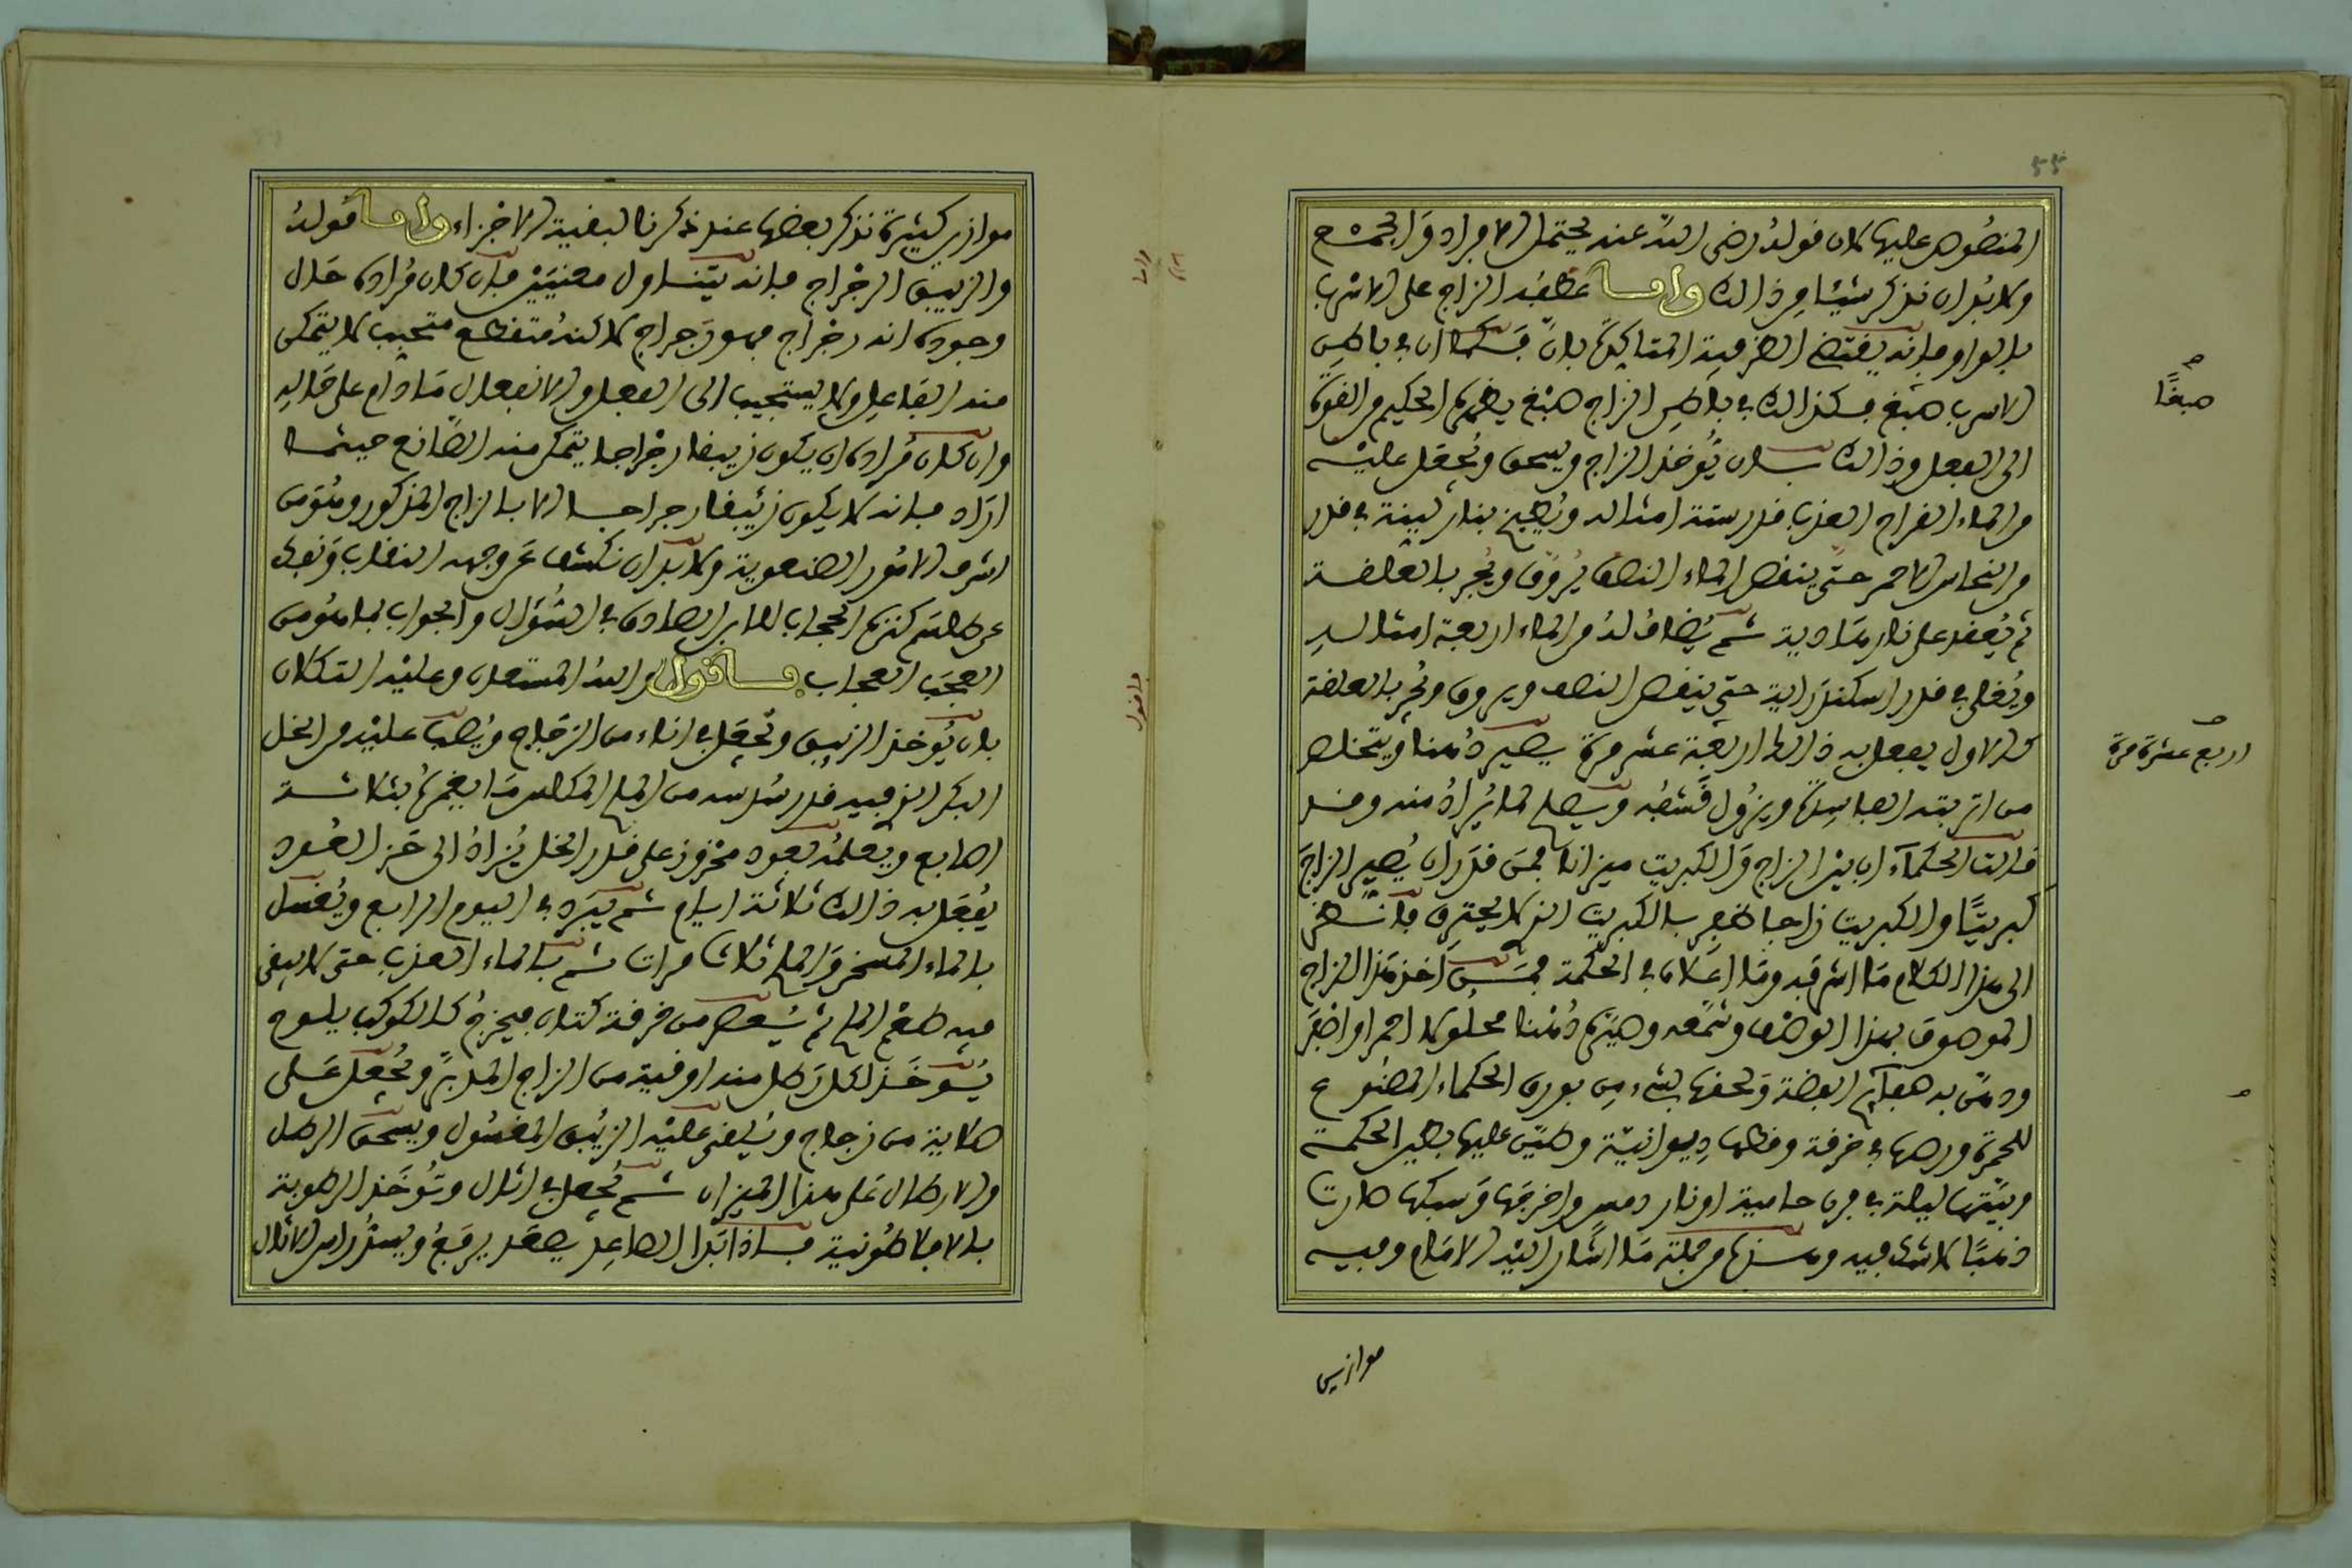 ٥٥
المنصوص عليها لان قوله رضي الله عنه يحتمل الافراد والجمع
ولابد ان نذكر شيئا من ذالك واما عطفه الزاج على الاسرب
بالواو فانه يقتضي الضرفية المتاكدة بان فكما ان في باطن
الاسرب صبغ فكذالك في باطن الزاج صبغ يضهره الحكيم من القوة
الى الفعل وذالك بان يُوخذ الزاج ويسحق ويُجعل عليه
من الماء القراح العذب قدر ستة امثاله ويُطبخ بنار لينة في قدر
من النحاس الاحمر حتى ينقص الماء النصف يُروَّق ويُجر بالعلقة
ثم يُعقد على نار هادية ثم يُضاف له من الماء اربعة امثاله
ويُغلى في قدر اسكندرانية حتى ينقص النصف ويروق ويُجر بالعلقة
كالاول يفعل به ذالك اربعة عشر مرة يصير دُهنا ويتخلص
من اتربته الفاسدة ويزول قشفه ويصلح لما يُراد منه وقد
قالت الحكماء ان بين الزاج والكبريت ميزانا فمن قدر ان يُصير الزاج
كبريتًا والكبريت زاجا ظفر بالكبريت الذي لا يحترق فانظر
الى هذا الكلام ما اشرفه وما اعلاه في الحكمة فمن اخذ هذا الزاج
الموصوف بهذا الوصف وشمَّعه وصيَّره دُهنا محلولا احمر او اخضر
ودهن به صفايح الفضة ولحفها بشيء من بورق الحكماء المصنوع
للحمرة ورصها في خرقة وقطها ديوانيتة وطين عليها بطين الحكمة
وبيَّتها ليلة في فرن حامية او نار دمس واخرجها وسبكها صارت
ذهبًا لا شك فيه وهذا من جملة ما اشار اليه الامام وفيه
موازين
صبغًا
اربع عشرة مرة
موازين كثيرة نذكر بعضها عند ذكرنا لبقية الاجزاء واما قوله
والزيبق الرجراج فانه يتناول معنيين فان كان مراده حال
وجوده انه رجراج فهو رجراج لاكنه متقطع متحبب لا يتمكن
منه الفاعل ولا يستجيب الى الفعل والانفعال ما دام على حاله
وان كان مراده ان يكون زيبقا رجراجا يتمكن منه الصانع حيثما
اراد فانه لا يكون زئيبقا رجراجا الا بالزاج المذكور وهو من
اشرف الامور الصنعوية ولابد ان نكشف عن وجهه النقاب ونفك
عن طلسم كنزه الحجاب للمابر الصادق في السؤال والجواب بما هو من
العجب العجاب فاقول والله المستعان وعليه التكلان
بان يُوخذ الزيبق ويُجعل في اناء من الزجاج ويُصب عليه من الخل
البكر الذي فيه قدر سُدسه من الملح المكلس ما يغمره بثلاثة
اصابع ويعلمه بعود محزوز على قدر الخل يُزاد الى حز العود
يُفعل به ذالك ثلاثة ايام ثم يبرد في اليوم الرابع ويُغسل
بالماء المسخن والملح ثلاث مرات ثم بالماء العذب حتى لا يبقى
فيه طعم الملح ثم يُعصر من خرقة كتان فيخرج كالكوكب يلوح
يُوخذ لكل رطل منه اوقية من الزاج المدبر ويُجعل على
صلاية من زجاج ويُلقى عليه الزيبق المغسول ويسحق الرطل
والارطال على هذا الميزان ثم يُجعل في اثال وتُوخذ الرطوبة
بالافلاطونية فاذا ابتدا الصاعد يصعد يرفع ويستر راس الاثال
واما
فاقول